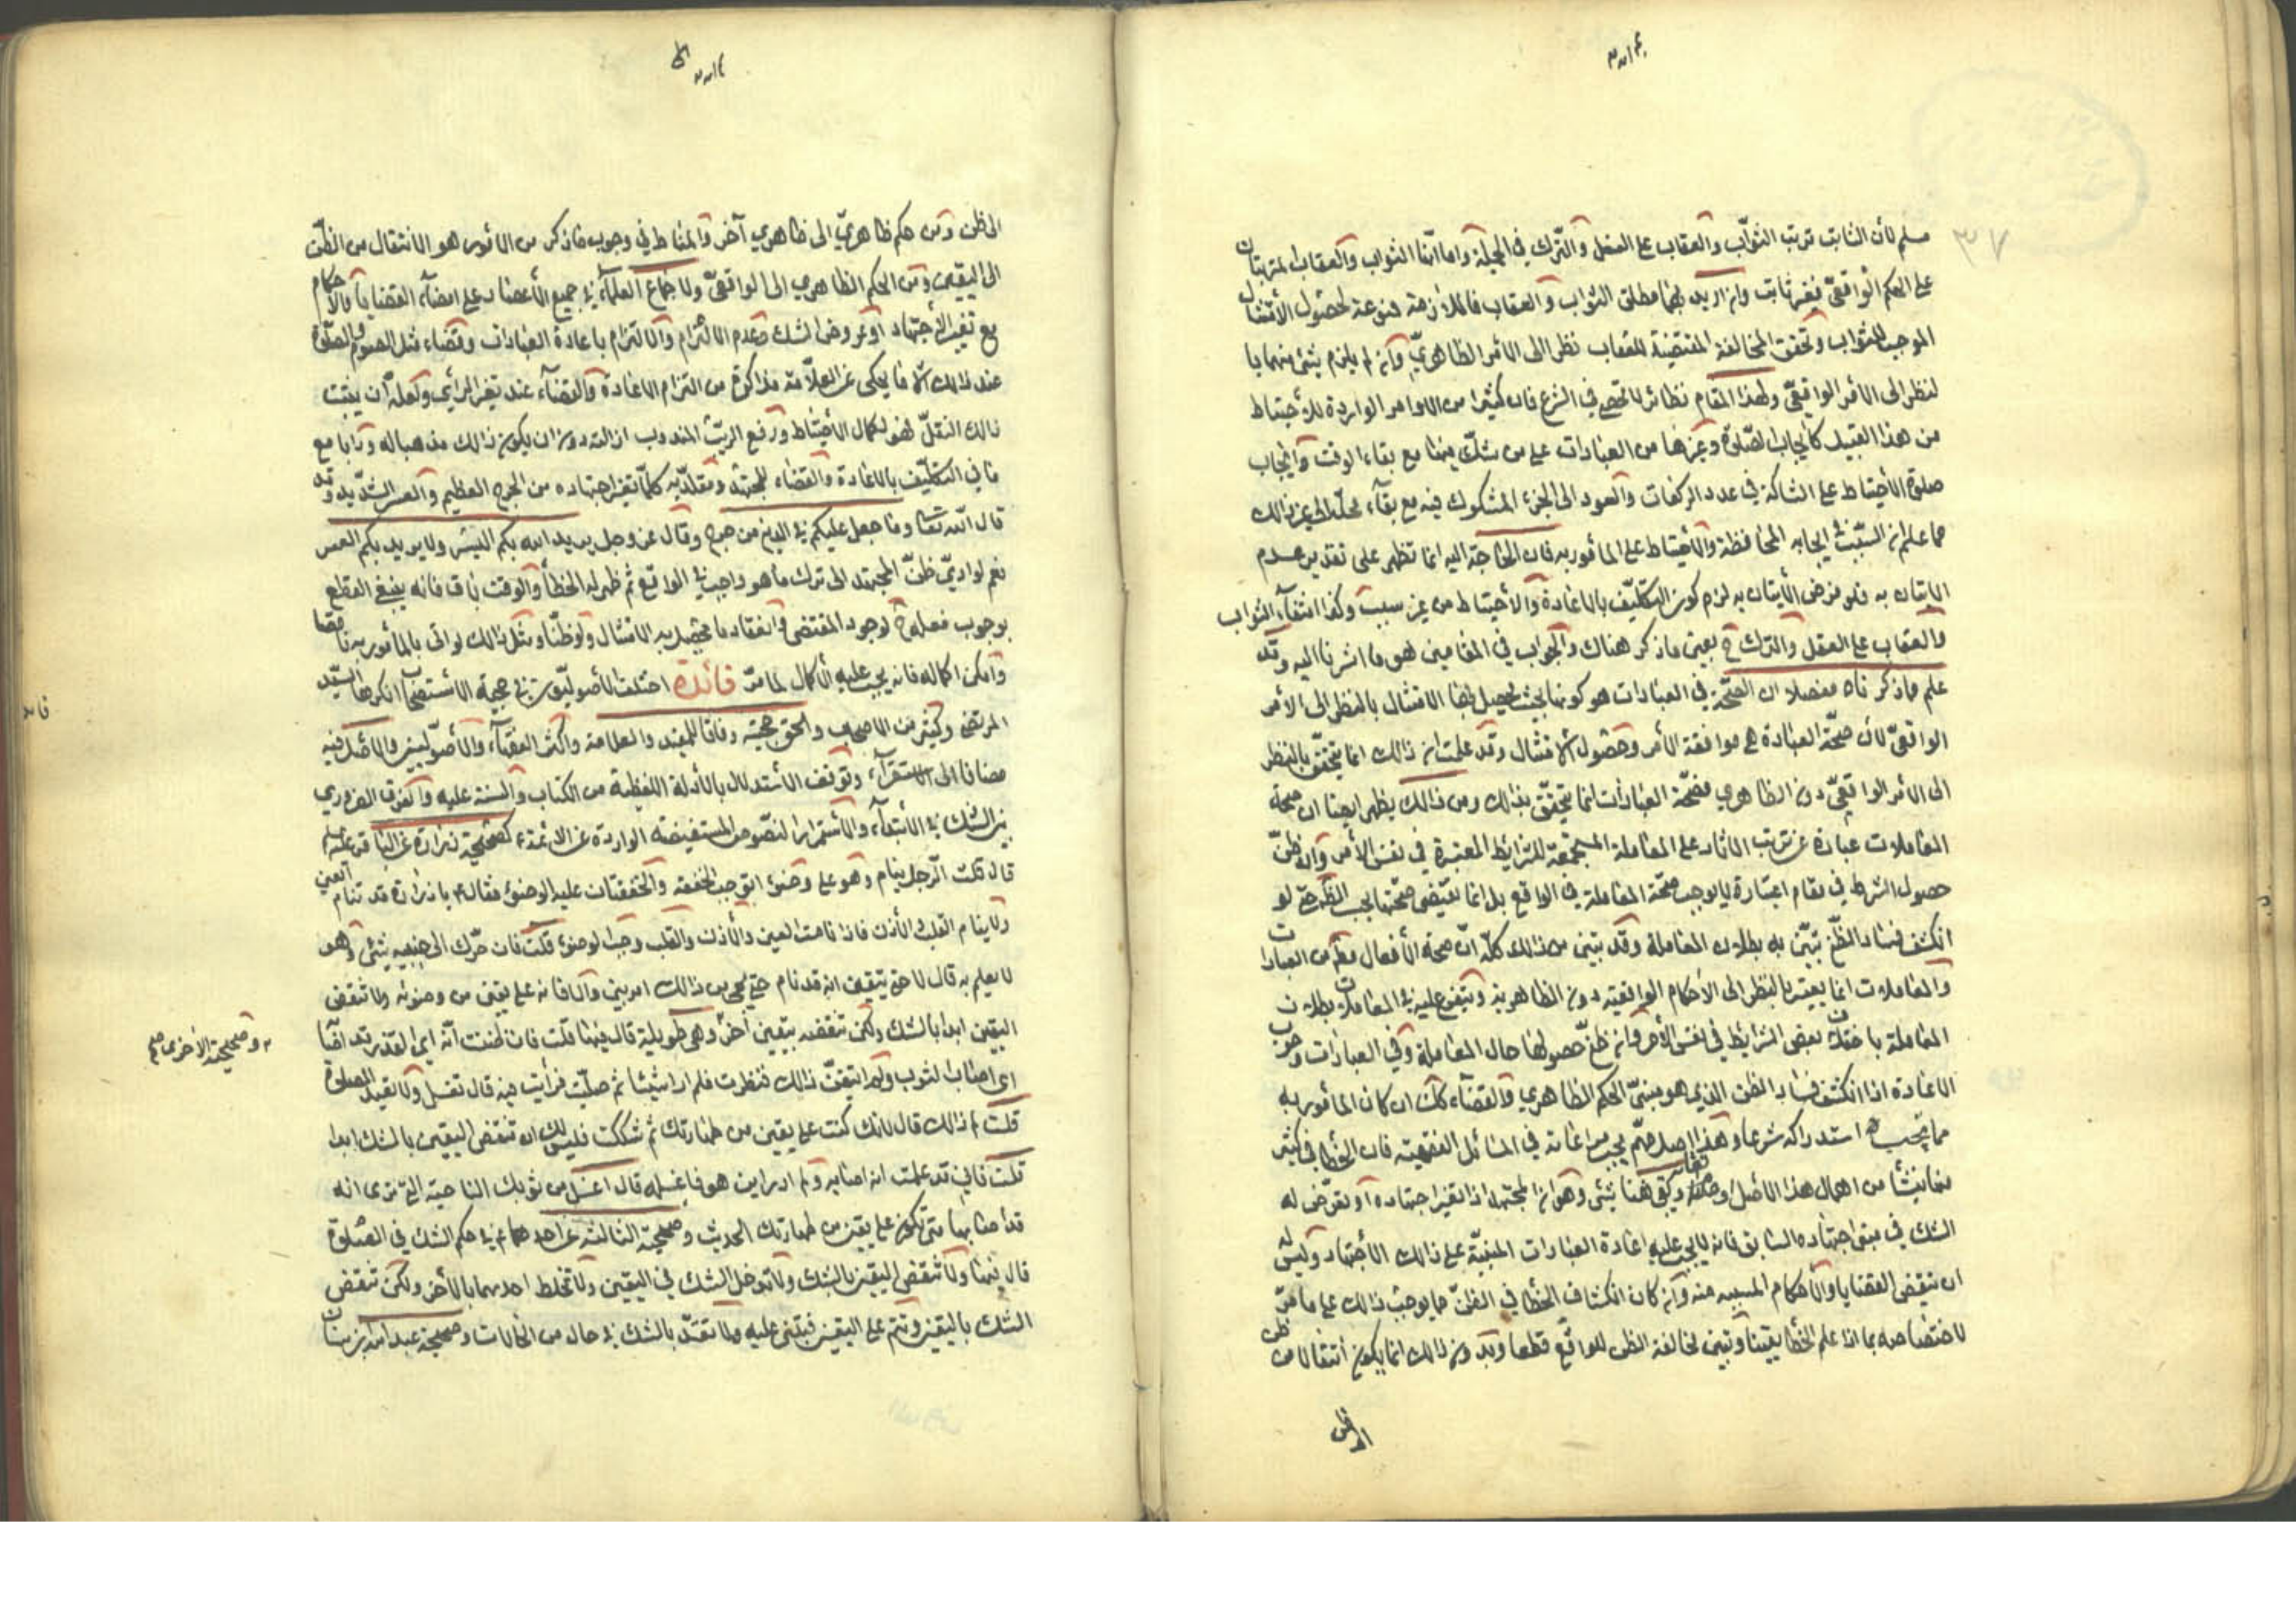 مسلم لأن الثابت ترتب الثواب والعقاب على الفعل والترك في الجملة واما انّما الثواب والعقاب لمترتبان
على الحكم الواقعيّ فغير ثابت وان اريد بهما مطلق الثواب والعقاب فالملازمة ممنوعة لحصول الأمتثال
الموجب للثواب وتحقق المخالفة المقتضية للعقاب نظرا الى الامر الظاهريّ وان لم يلزم شئ منهما با
لنظر الى الأمر الواقعيّ ولهذا المقام نظائر لا تحصى في الشرع فان كثيرا من الاوامر الواردة للأحتياط
من هذا القبيل كايجاب الصّلوة وغيرها من العبادات على من شكّ فيها مع بقاء الوقت وايجاب
صلوة الأحتياط على الشاك في عدد الركعات والعود الى الجزء المشكوك فيه مع بقاء محلّه الى غير ذالك
مما علم ان السّبب في ايجابه المحافظة والأحتياط على المأمور به فان الحاجة اليه انما تظهر على تقدير عدم
الاتيان به فلو فرض الأتيان به لزم كون التكليف بالاعادة والأحتياط من غير سبب وكذا انتفاء الثواب
والعقاب على الفعل والترك ح بعين ما ذكر هناك والجواب في المقامين هو ما اشرنا اليه وقد
علم مما ذكرناه مفصلا ان الصّحّة في العبادات هو كونها بحيث يحصل بها الامتثال بالنظر الى الأمر
الواقعيّ لأن صحّة العبادة هي موافقة الأمر وحصول الامتثال وقد علمت ان ذالك انما يتحقّق بالنظر
الى الامر الواقعيّ دون الظاهري فصحّة العبادات انما يتحقّق بذالك ومن ذالك يظهر ايضا ان صحة
المعاملات عبارة عن ترتب الاثار على المعاملة المستجمعة للشرايط المعتبرة في نفس الأمر وان ظنّ
حصول الشرط في مقام اعتباره لا يوجب صحّة المعاملة في الواقع بل انما يقتضى صحّتها بحسب الظّ حتى لو
انكشف فساد الظّن تبيّن به بطلان المعاملة وقد تبين من ذالك كلّه انّ صحة الأفعال مطم من العبادات
والمعاملات انما يعتبر بالنظر الى الأحكام الواقعيّة دون الظاهرية ويتفرع عليه في المعاملات بطلان
المعاملة باختلال بعض الشرايط في نفس الأمر وان ظنّ حصولها حال المعاملة وفي العبادات وجوب
الاعادة اذا انكشف فساد الظن الذي هو مبنيّ الحكم الظاهري والقضاء كك ان كان المأمور به
مما يجب استدراكه شرعا وهذا اصل مهمّ يجب مراعاته في المسائل الفقهيّة فان الخطأ في كثير
منها نشأ من اهمال هذا الأصل وبقى هنا شئ وهو ان المجتهد اذا تغير اجتهاده أو تعرّض له
الشك في مبنى اجتهاده السابق فانه لا يجب عليه اعادة العبادات المبنيّة على ذالك الأجتهاد وليس له
ان ينقض القضايا والأحكام المسببه منه وان كان انكشاف الخطأ في الظنّ مما يوجب ذالك على ما مرّ
لاختصاصه بما اذا علم الخطأ يقينا وتبين مخالفة الظن للواقع قطعا وبدون ذالك انما يكون انتقالا من ظن
الى ظن ومن حكم ظاهريّ الى ظاهري آخر والمناط في وجوب ما ذكر من الأمور هو الانتقال من الظنّ
الى اليقين ومن الحكم الظاهري الى الواقعيّ ولاجماع العلماء في جميع الأعصار على امضاء القضايا والأحكام
مع تغير الأجتهاد او عروض الشك وعدم الالتزام والالزام باعادة العبادات وقضاء مثل الصوم والصلوة
عند ذالك الا ما يحكى عن العلامة مذاكرة من التزام الاعادة والقضاء عند تغير الرأي ولعله ان يثبت
ذالك النقل فهو لكمال الأحتياط ورفع الريب المندوب ازالته دون ان يكون ذالك مذهبا له ورأيا مع
ما في التكليف بالاعادة والقضاء للمجتهد ومقلّديه كلّما تغير اجتهاده من الحرج العظيم والعسر الشّديد وقد
قال الله تعا وما جعل عليكم في الدين من حرج وقال عز وجل يريد الله بكم اليسر ولا يريد بكم العسر
نعم لو ادىّ ظنّ المجتهد الى ترك ما هو واجب في الواقع ثم ظهر له الخطأ والوقت باق فانه ينبغى القطع
بوجوب فعله ح لوجود المقتضى وانعقاد ما يحصل به الامتثال ولو ظنّا ومثل ذالك لو اتى بالمأمور به ناقصا
وامكن اكماله فانه يجب عليه الأكمال لما مرّ فائدة اختلف الأصوليّون في حجية الاستصحاب انكرها السيّد
المرتضى وكثير من الاصحاب والحق حجيته وفاقا للمفيد والعلامة واكثر الفقهاء والأصوليين والأصل فيه
مضافا الى الاستقراء وتوقف الأستدلال بالأدلة اللفظية من الكتاب والسنة عليه والفرق الضروري
بين الشك في الأبتداء والأستمرار النّصوص المستفيضه الواردة عن الائمة ع كصحيحة زرارة عن الباقر عليه السلم
قال قلت الرّجل ينام وهو على وضوء اتوجب الخفقه والخفقتان عليه الوضوء فقال ع يا زرارة قد تنام العين
ولا ينام القلب والأذن فاذا نامت العين والأذن والقلب وجب الوضوء قلت فان حرّك الى جنبه شئ وهو
لا يعلم به قال لا حتى يتيقن انه قد نام حتى يجئ من ذالك امر بين والا فانه على يقين من وضوئه ولا تنقض
اليقين ابدا بالشك ولكن تنقضه بيقين آخر وهى طويلة قال فيها قلت فان ظننت انّه ايّ القذر قد اصا
اي اصاب الثوب ولم اتيقنّ ذالك فنظرت فلم ار شيئا ثم صلّيت فرأيت فيه قال تغسل ولا تعيد الصلوة
قلت لم ذالك قال لانك كنت على يقين من طهارتك ثم شككت فليس لك ان تنقض اليقين بالشك ابدا
قلت فاني قد علمت انه اصابه ولم ادر اين هو فاغسله قال اغسل من ثوبك الناحية التي ترى انه
قد اصابها حتى تكون على يقين من طهارتك الحديث وصحيحة الثالثة عن احدهما ع في حكم الشك في الصّلوة
قال فيها ولا تنقض اليقين بالشك ولا تدخل الشك في اليقين ولا تخلط احدهما بالآخر ولكن تنقض
الشك باليقين وتتم على اليقين فيبتنى عليه ولا تعتدّ بالشك في حال من الحالات وصحيحة عبد الله بن سنان
وصحيحة الأخرى صح